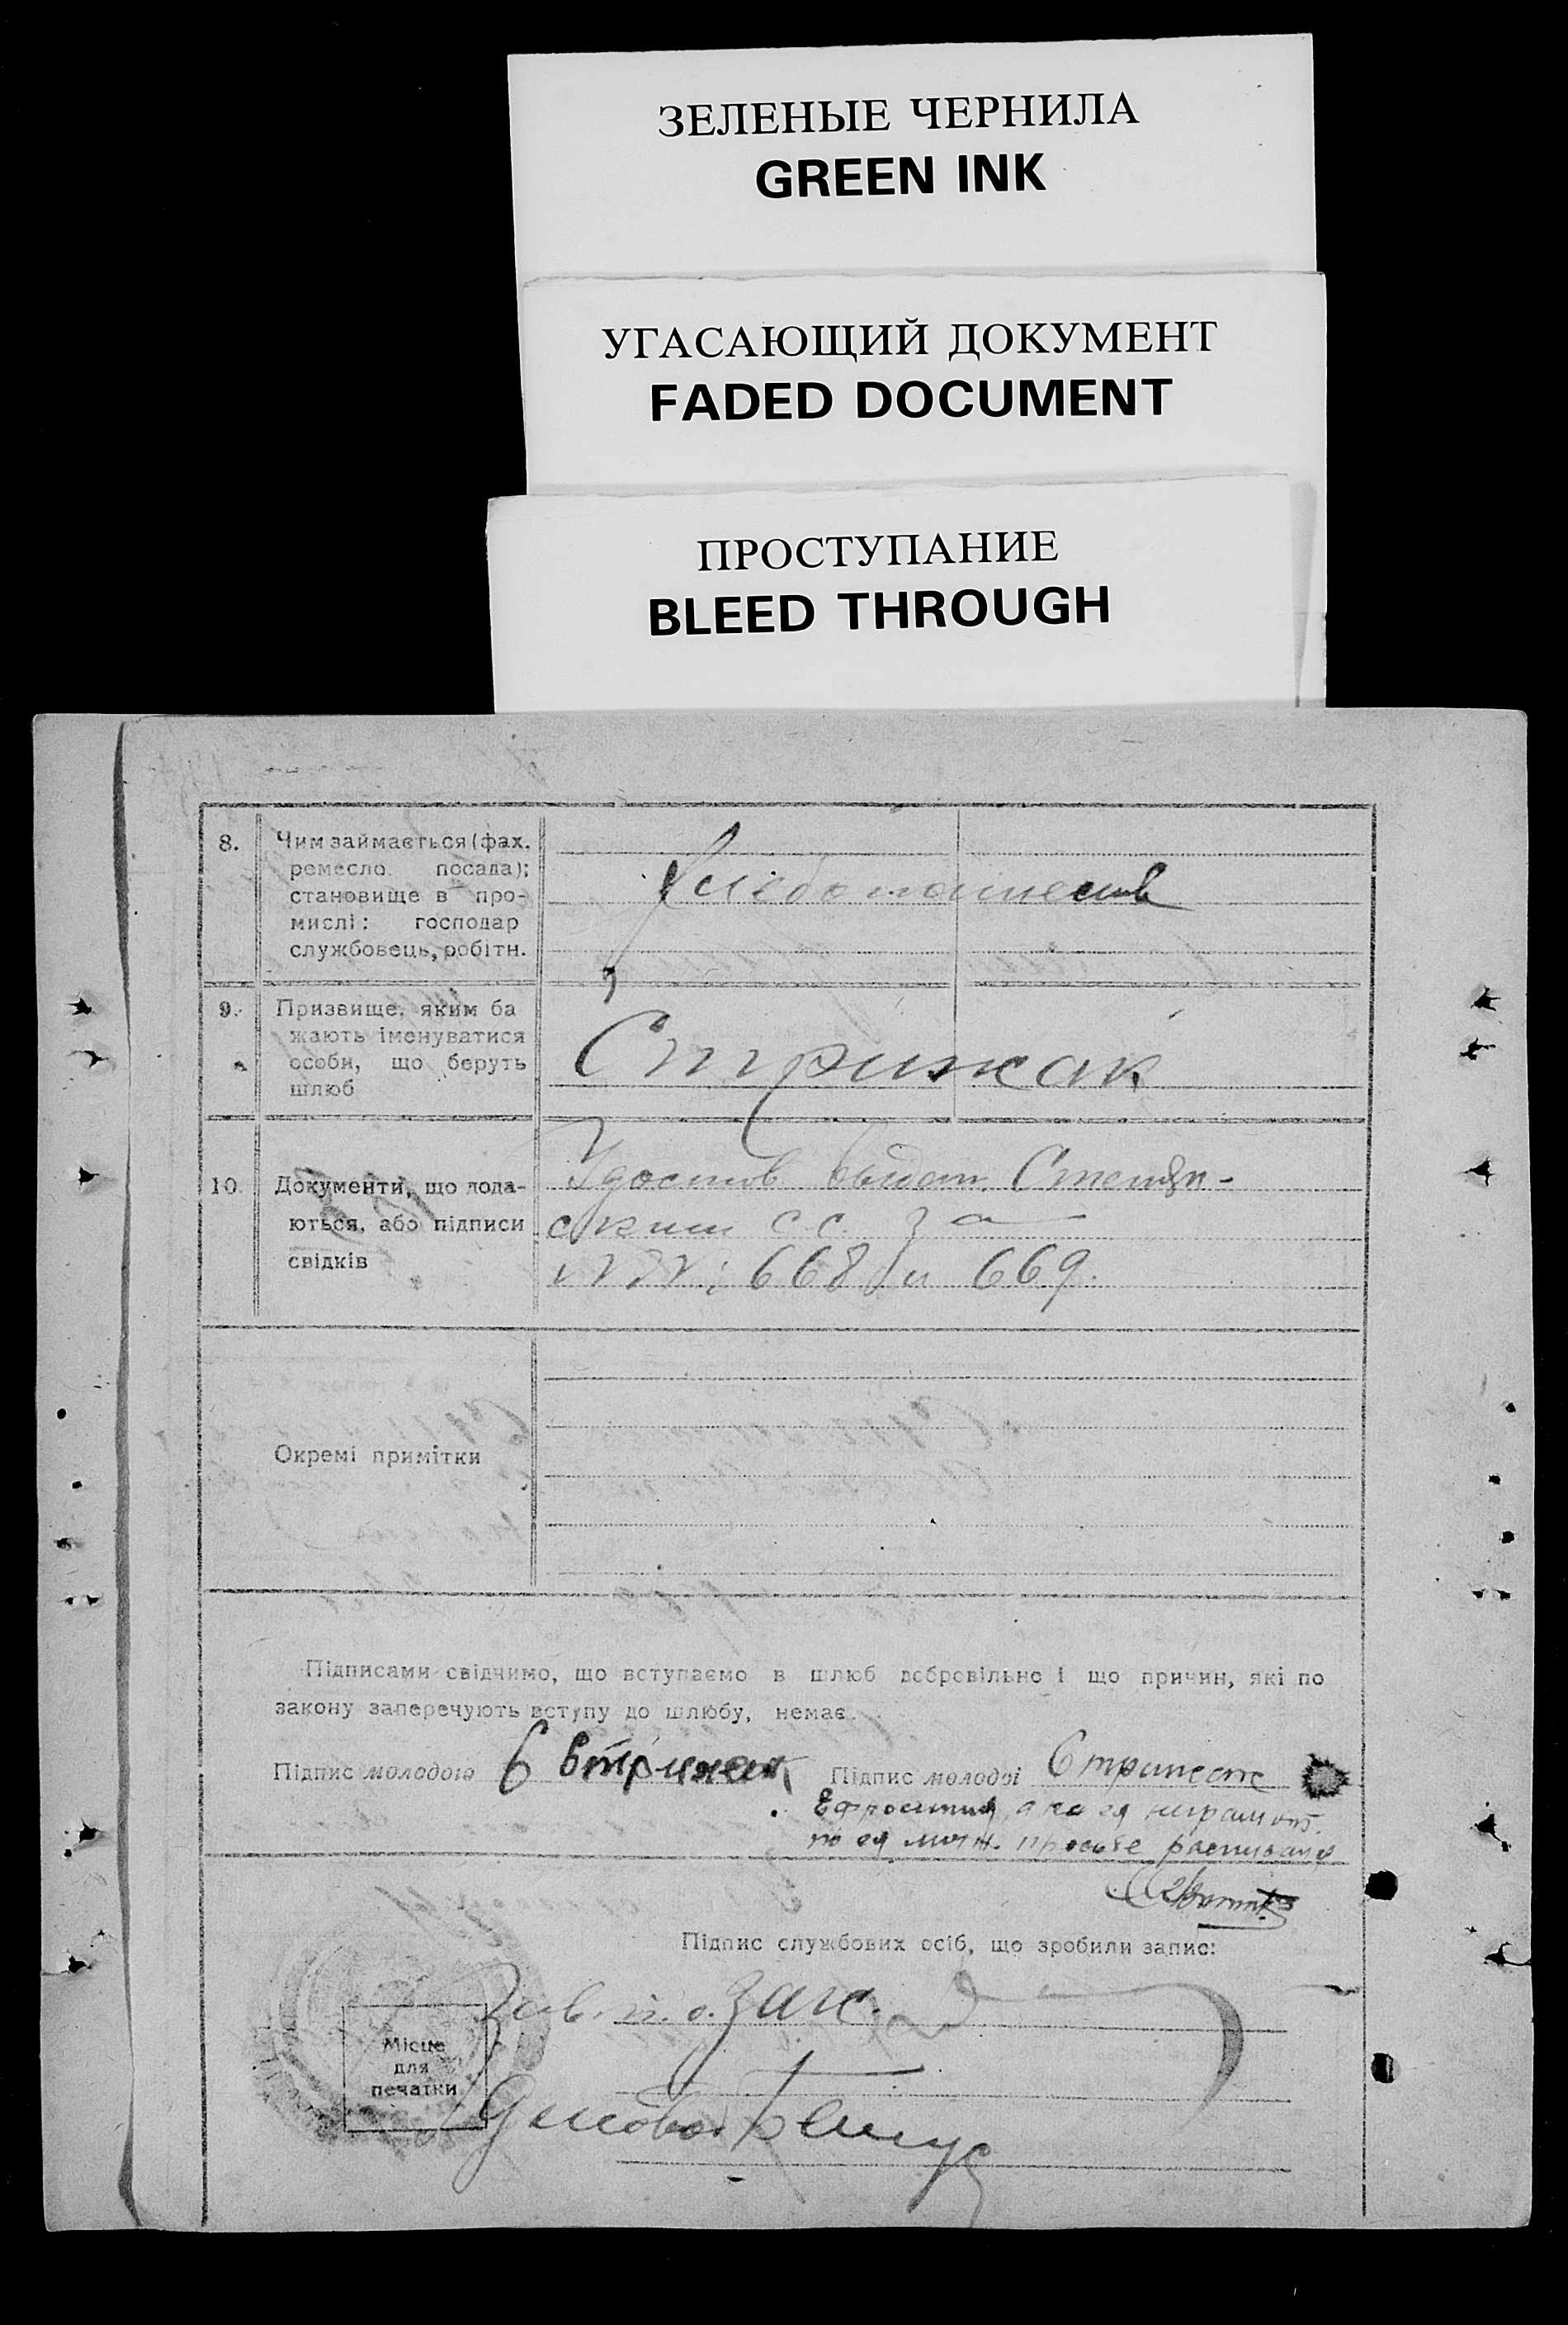 ЗЕЛЕНЫЕ ЧЕРНИЛА
GREEN INK
УГАСАЮЩИЙ ДОКУМЕНТ
FADED DOCUMENT
ПРОСТУПАНИЕ
BLEED THROUGH
8.
Чим займається (фах.
ремесло посада);
становище в про-
мислі: господар
службовець, робітн.
Хлебопашество
9.
Призвище, яким ба
жають іменуватися
особи, що беруть
шлюб
Стрижак
10.
Документи, що дода-
ються, або підписи
свідків
Удостов. выдан.
ским с.с. за
№№: 668 и 669.
Окремі примітки
Підписами свідчимо, що вступаємо в шлюб добровільно і що причин, які по
закону заперечують вступу до шлюбу, немає.
Підпис молодого Стрижак Підпис молодої Стрижак
Ефросиния, а за ея неграмот.
по ея личн. просьбе расписался
Підпис службових осіб, що зробили запис:
Зав. п. о. загс.
Місце
для
печатки
Деловод